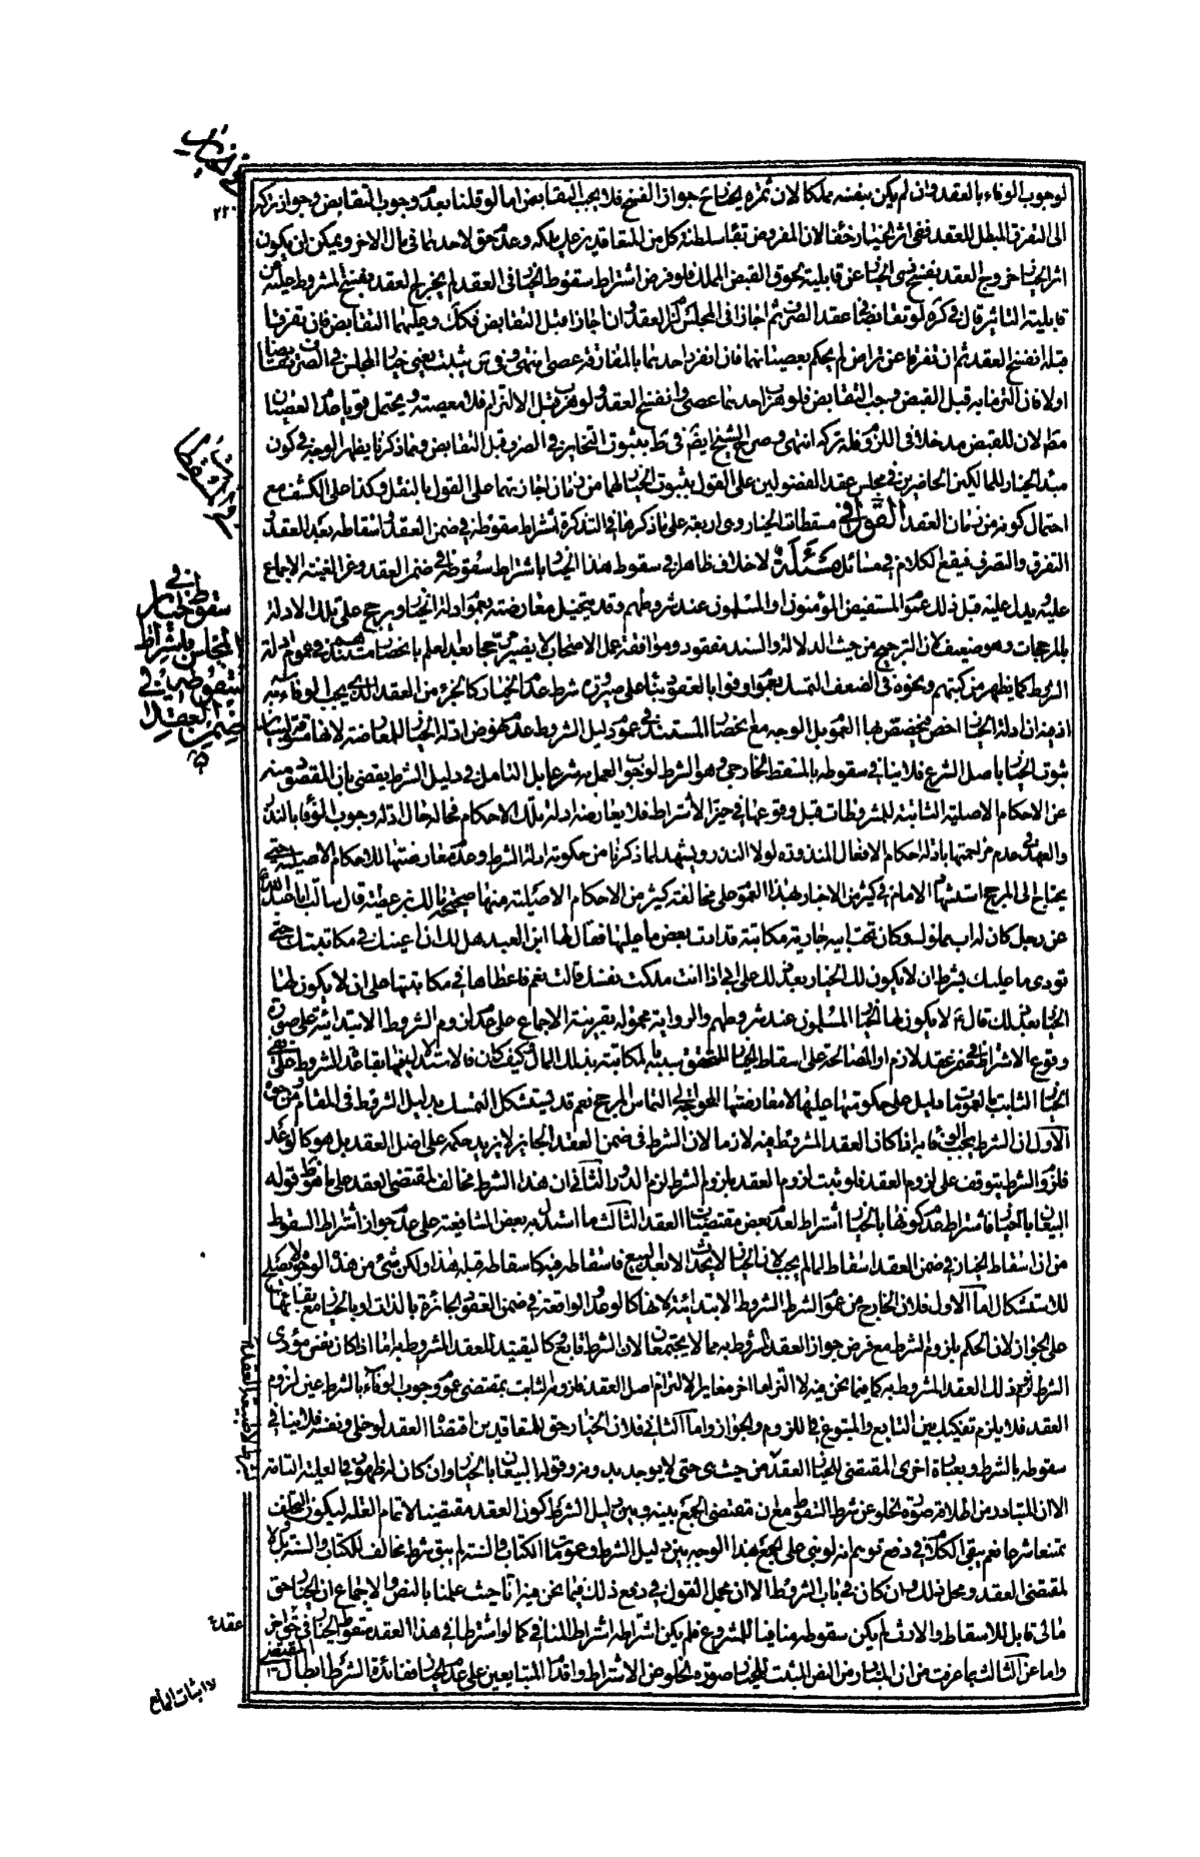 في خيارات
٢٢٠
لوجوب الوفاء بالعقد وان لم يكن بنفسه مملكا الا ان ثمرة الخيار ح جواز الفسخ فلا يجب التقابض اما لو قلنا بعدم وجوب التقابض وجواز تركه
الى التفرق المبطل للعقد ففي اثر الخيار خفاء لان المفروض بقاء سلطنة كل من المتعاقدين على ملكه وعدم حق لاحدهما في مال الاخر ويمكن ان يكون
اثر الخيار خروج العقد بفسخ ذي الخيار عن قابلية لحوق القبض المملك فلو فرض اشتراط سقوط الخيار في العقد لم يخرج العقد بفسخ المشروط عليه عن
قابلية التاثير قال في كره لو تقابضا في عقد الصرف ثم اجازا في المجلس لزم العقد وان اجازا قبل التقابض فكك وعليهما التقابض فان تفرقا
قبله انفسخ العقد ثم ان تفرقا عن تراض لم يحكم بعصيانهما فان انفرد احدهما بالمفارقة عصى انتهى وفي س يثبت يعني خيار المجلس في الصرف تقابضا
اولا فان التزما به قبل القبض وجب التقابض فلو هرب احدهما عصى وانفسخ العقد ولو هرب قبل الالتزام فلا معصية ويحتمل قويا عدم العصيان
مط لان للقبض مدخلا في اللزوم فله تركه انتهى وصرح الشيخ ايضم في ط بثبوت التخاير في الصرف قبل التقابض ومما ذكرنا يظهر الوجه في كون
مبدء الخيار للمالكين الحاضرين في مجلس عقد الفضولين على القول بثبوت الخيار لهما من زمان اجازتهما على القول بالنقل وكذا على الكشف مع
احتمال كونه من زمان العقد القول في مسقطات الخيار وهي اربعة على ما ذكرها في التذكرة اشتراط سقوطه في ضمن العقد واسقاطه بعد العقد و
التفرق والتصرف فيقع الكلام في مسائل مسئلة لا خلاف ظاهرا في سقوط هذا الخيار باشتراط سقوطه في ضمن العقد وعن الغنية الاجماع
عليه ويدل عليه قبل ذلك عموم المستفيض المؤمنون او المسلمون عند شروطهم وقد يتخيل معارضته بعموم ادلة الخيار ويرجح على تلك الادلة
بالمرجحات وهو ضعيف لان الترجيح من حيث الدلالة والسند مفقود وموافقة عمل الاصحاب لا يصير مرجحا بعد العلم بانحصار مستندهم في عموم ادلة
الشروط كما يظهر من كتبهم ونحوه في الضعف التمسك بعموم اوفوا بالعقود بناء على صيرورة شرط عدم الخيار كالجزء من العقد الذي يجب الوفاء به
اذ فيه ان ادلة الخيار اخص فيخصص بها العموم بل الوجه مع انحصار المستند في عموم دليل الشروط عدم نهوض ادلة الخيار للمعارضة لانها مسوقة لبيان
ثبوت الخيار باصل الشرع فلا ينافي سقوطه بالمسقط الخارجي وهو الشرط لوجوب العمل به شرعا بل التامل في دليل الشرط يقضي بان المقصود منه
عن الاحكام الاصلية الثابتة للمشروطات قبل وقوعها في حيز الاشتراط فلا يعارضه ادلة تلك الاحكام فحاله حال ادلة وجوب الوفاء بالنذر
والعهد في عدم مزاحمتها بادلة احكام الافعال المنذورة لولا النذر ويشهد لما ذكرنا من حكومة ادلة الشرط وعدم معارضتها للاحكام الاصلية حتى
يحتاج الى المرجح استشهاد الامام في كثير من الاخبار بهذا العموم على مخالفة كثير من الاحكام الاصلية منها صحيحة مالك بن عطية قال سالت ابا عبد الله ع
عن رجل كان له اب مملوك وكان تحت ابيه جارية مكاتبة قد ادت بعض ما عليها فقال لها ابن العبد هل لك ان اعينك في مكاتبتك حتى
تؤدى ما عليك بشرط ان لا يكون لك الخيار بعد ذلك على ابي اذا انت ملكت نفسك قالت نعم فاعطاها في مكاتبتها على ان لا يكون لها
الخيار بعد ذلك قال ع لا يكون لها الخيار المسلمون عند شروطهم والرواية محمولة بقرينة الاجماع على عدم لزوم الشروط الابتدائية على صورة
وقوع الاشتراط في ضمن عقد لازم او المصالحة على اسقاط الخيار المتحقق سببه بالمكاتبة بذلك المال وكيف كان فالاستدلال فيها بقاعدة الشروط على نفى
الخيار الثابت بالعمومات دليل على حكومتها عليها لا معارضتها المحوجة الى التماس المرجح نعم قد يستشكل التمسك بدليل الشروط في المقام من وجوه
الاول ان الشرط يجب الوفاء به اذا كان العقد المشروط فيه لازما لان الشرط في ضمن العقد الجائز لا يزيد حكمه على اصل العقد بل هو كالوعد
فلزوم الشرط يتوقف على لزوم العقد فلو ثبت لزوم العقد بلزوم الشرط لزم الدور الثاني ان هذا الشرط مخالف لمقتضى العقد على ما هو ظ قوله
البيعان بالخيار فاشتراط عدم كونهما بالخيار اشتراط لعدم بعض مقتضيات العقد الثالث ما استدل به بعض الشافعية على عدم جواز اشتراط السقوط
من ان اسقاط الخيار في ضمن العقد اسقاط لما لم يجب لان الخيار لا يحدث الا بعد البيع فاسقاطه فيه كاسقاطه قبله هذا ولكن شئ من هذه الوجوه لا يصلح
للاستشكال اما الاول فلان الخارج من عموم الشرط الشروط الابتدائية لانها كالوعد والواقعة في ضمن العقود الجائزة بالذات او بالخيار مع بقائها
على الجواز لان الحكم بلزوم الشرط مع فرض جواز العقد المشروط به مما لا يجتمعان لان الشرط تابع وكالتقييد للعقد المشروط به اما اذا كان نفس مؤدى
الشرط لزوم ذلك العقد المشروط به كما فيما نحن فيه لا التزاما اخر مغايرا لالتزام اصل العقد فلزومه الثابت بمقتضى عموم وجوب الوفاء بالشرط عين لزوم
العقد فلا يلزم تفكيك بين التابع والمتبوع في اللزوم والجواز واما الثاني فلان الخيار حق للمتعاقدين اقتضاه العقد لو خلى ونفسه فلا ينافي
سقوطه بالشرط وبعبارة اخرى المقتضى للخيار العقد من حيث هو حتى لا يوجد بدونه وقوله البيعان بالخيار وان كان له ظهور في العلية التامة
الا ان المتبادر من اطلاقه صورة الخلو عن شرط السقوط مع ان مقتضى الجمع بينه وبين دليل الشرط كون العقد مقتضيا لا تمام العلة ليكون التخلف
ممتنعا شرعا نعم يبقى الكلام في دفع توهم انه لو بنى على الجمع بهذا الوجه بين دليل الشرط وعمومات الكتاب والسنة لم يبق شرط مخالف للكتاب والسنة بل ولا
لمقتضى العقد ومحل ذلك وان كان في باب الشروط الا ان مجمل القول في دفع ذلك فيما نحن فيه انا حيث علمنا بالنص والاجماع ان الخيار حق
مالى قابل للاسقاط والارث لم يكن سقوطه منافيا للمشروع فلم يكن اشتراطه اشتراط المنافي كما لو اشترطا في هذا العقد سقوط الخيار في عقد اخر
واما عن الثالث بما عرفت من ان المتبادر من النص المثبت للخيار صورة الخلو عن الاشتراط واقدام المتبايعين على عدم الخيار ففائدة الشرط ابطال المقتضى
في المسقطات
في
سقوط خيار
المجلس باشتراط
سقوطه في
ضمن العقد
عقد
لا اثبات المانع